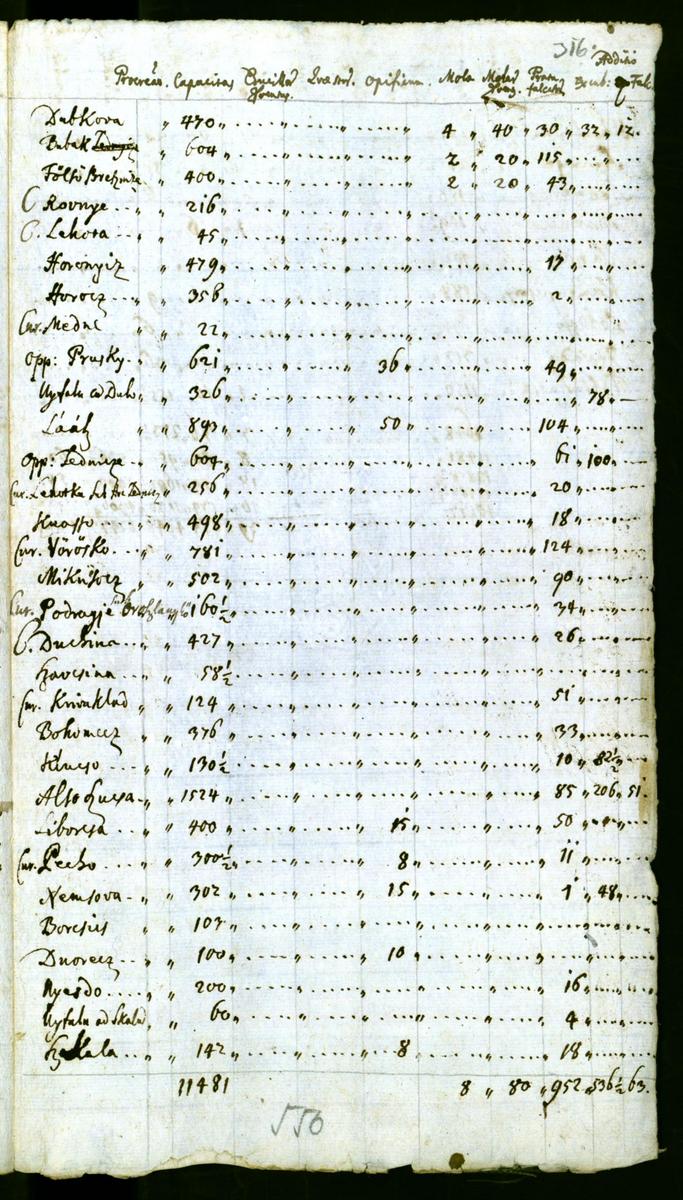 316.
Additio
Procreat. Capacitas Quaest. Opificum. Mola Molae Prata falcat. Excub: Falc.
Dubkova " 470 " 4 " 40 " 30 " 32 " 12.
Babak " 604 " 2 " 20 " 115 "
Fölső Breznicza " 400 " 2 " 20 " 43 "
C. Rovnye " 216 "
C. Lehota " 45 "
Horonyiz " 479 " 17 "
Horocz " 356 " 2 "
Cur. Medne " 22 "
Opp: Prusky " 621 " 36 " 49 "
Ujfalu ad Dub. " 326 " 78 "
Láátz " 893 " 50 " 104 "
Opp: Lednicza " 604 " 61 " 100 "
Cur. Lehotka " 256 " 20 "
Kvasso " 498 " 18 "
Cur. Vöröskő " 781 " 124 "
Mikusocz " 502 " 90 "
Cur. Podragje " 160½ " 34 "
C. Duchina " 427 " 26 "
Havesina " 58½ "
Cur. Krivoklad " 124 " 51 "
Bohunicz " 376 " 33 "
" 130½ " 10 " 82½ "
Alsó " 1524 " 85 " 206 " 51.
Liborcsa " 400 " 15 " 50 "
Cur. Pecho " 300½ " 8 " 11 "
Nemsova " 302 " 15 " 1 " 48 "
Borcsis " 107 "
Dvorecz " 100 " 10 "
" 200 " 16 "
Ujfalu ad Skalad " 60 " 4 "
Szkala " 142 " 8 " 18 "
11481 8 " 80 " 952 " 536½ " 63.
550